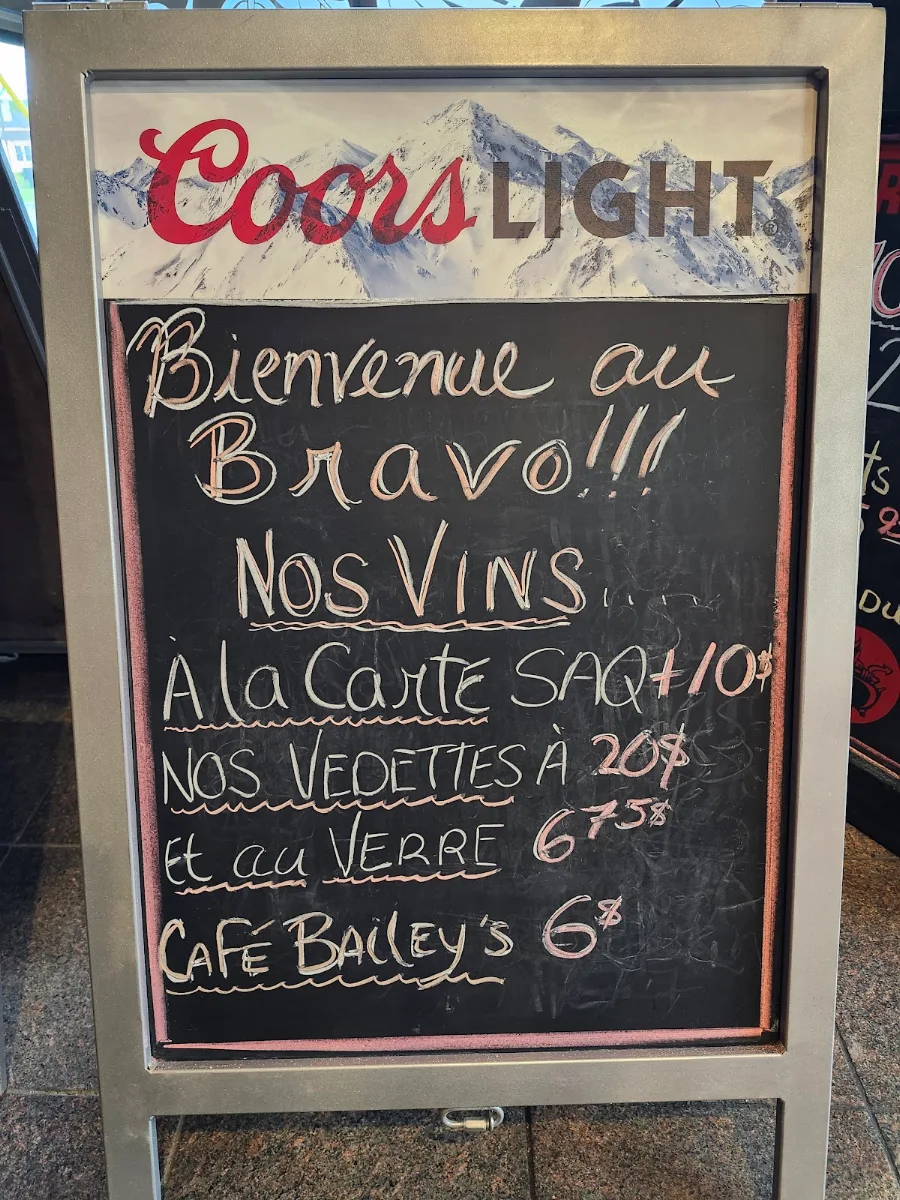 Coors LIGHT®
Bienvenue au
Bravo!!!
NOS VINS.....
À la Carte SAQ+10$
NOS VEDETTES À 20$
Et au VERRE 6 75$
CAFÉ BAILEY'S 6$